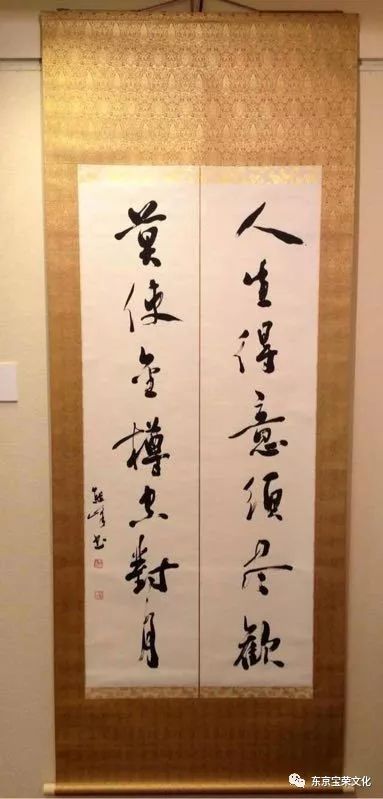 人生得意须尽歡
莫使金樽空對月
峰书
东京宝荣文化